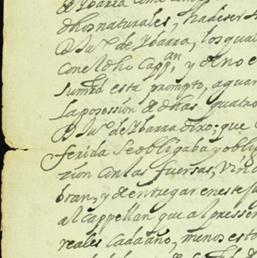 de Ybarra como
dhos naturales, hadeser
D. Ju.º de Ybarra, los qual
con el dho Capp.an, y en
sumd está prompto, aguar
la posession de dhas quatro
D. Ju.º de Ybarra dixo; que
ferida Se obligaba y obli
zion con las fuersas, vin
bran, y de entregar en este
al Cappellan que al pressen
reales Cada año, menos estr